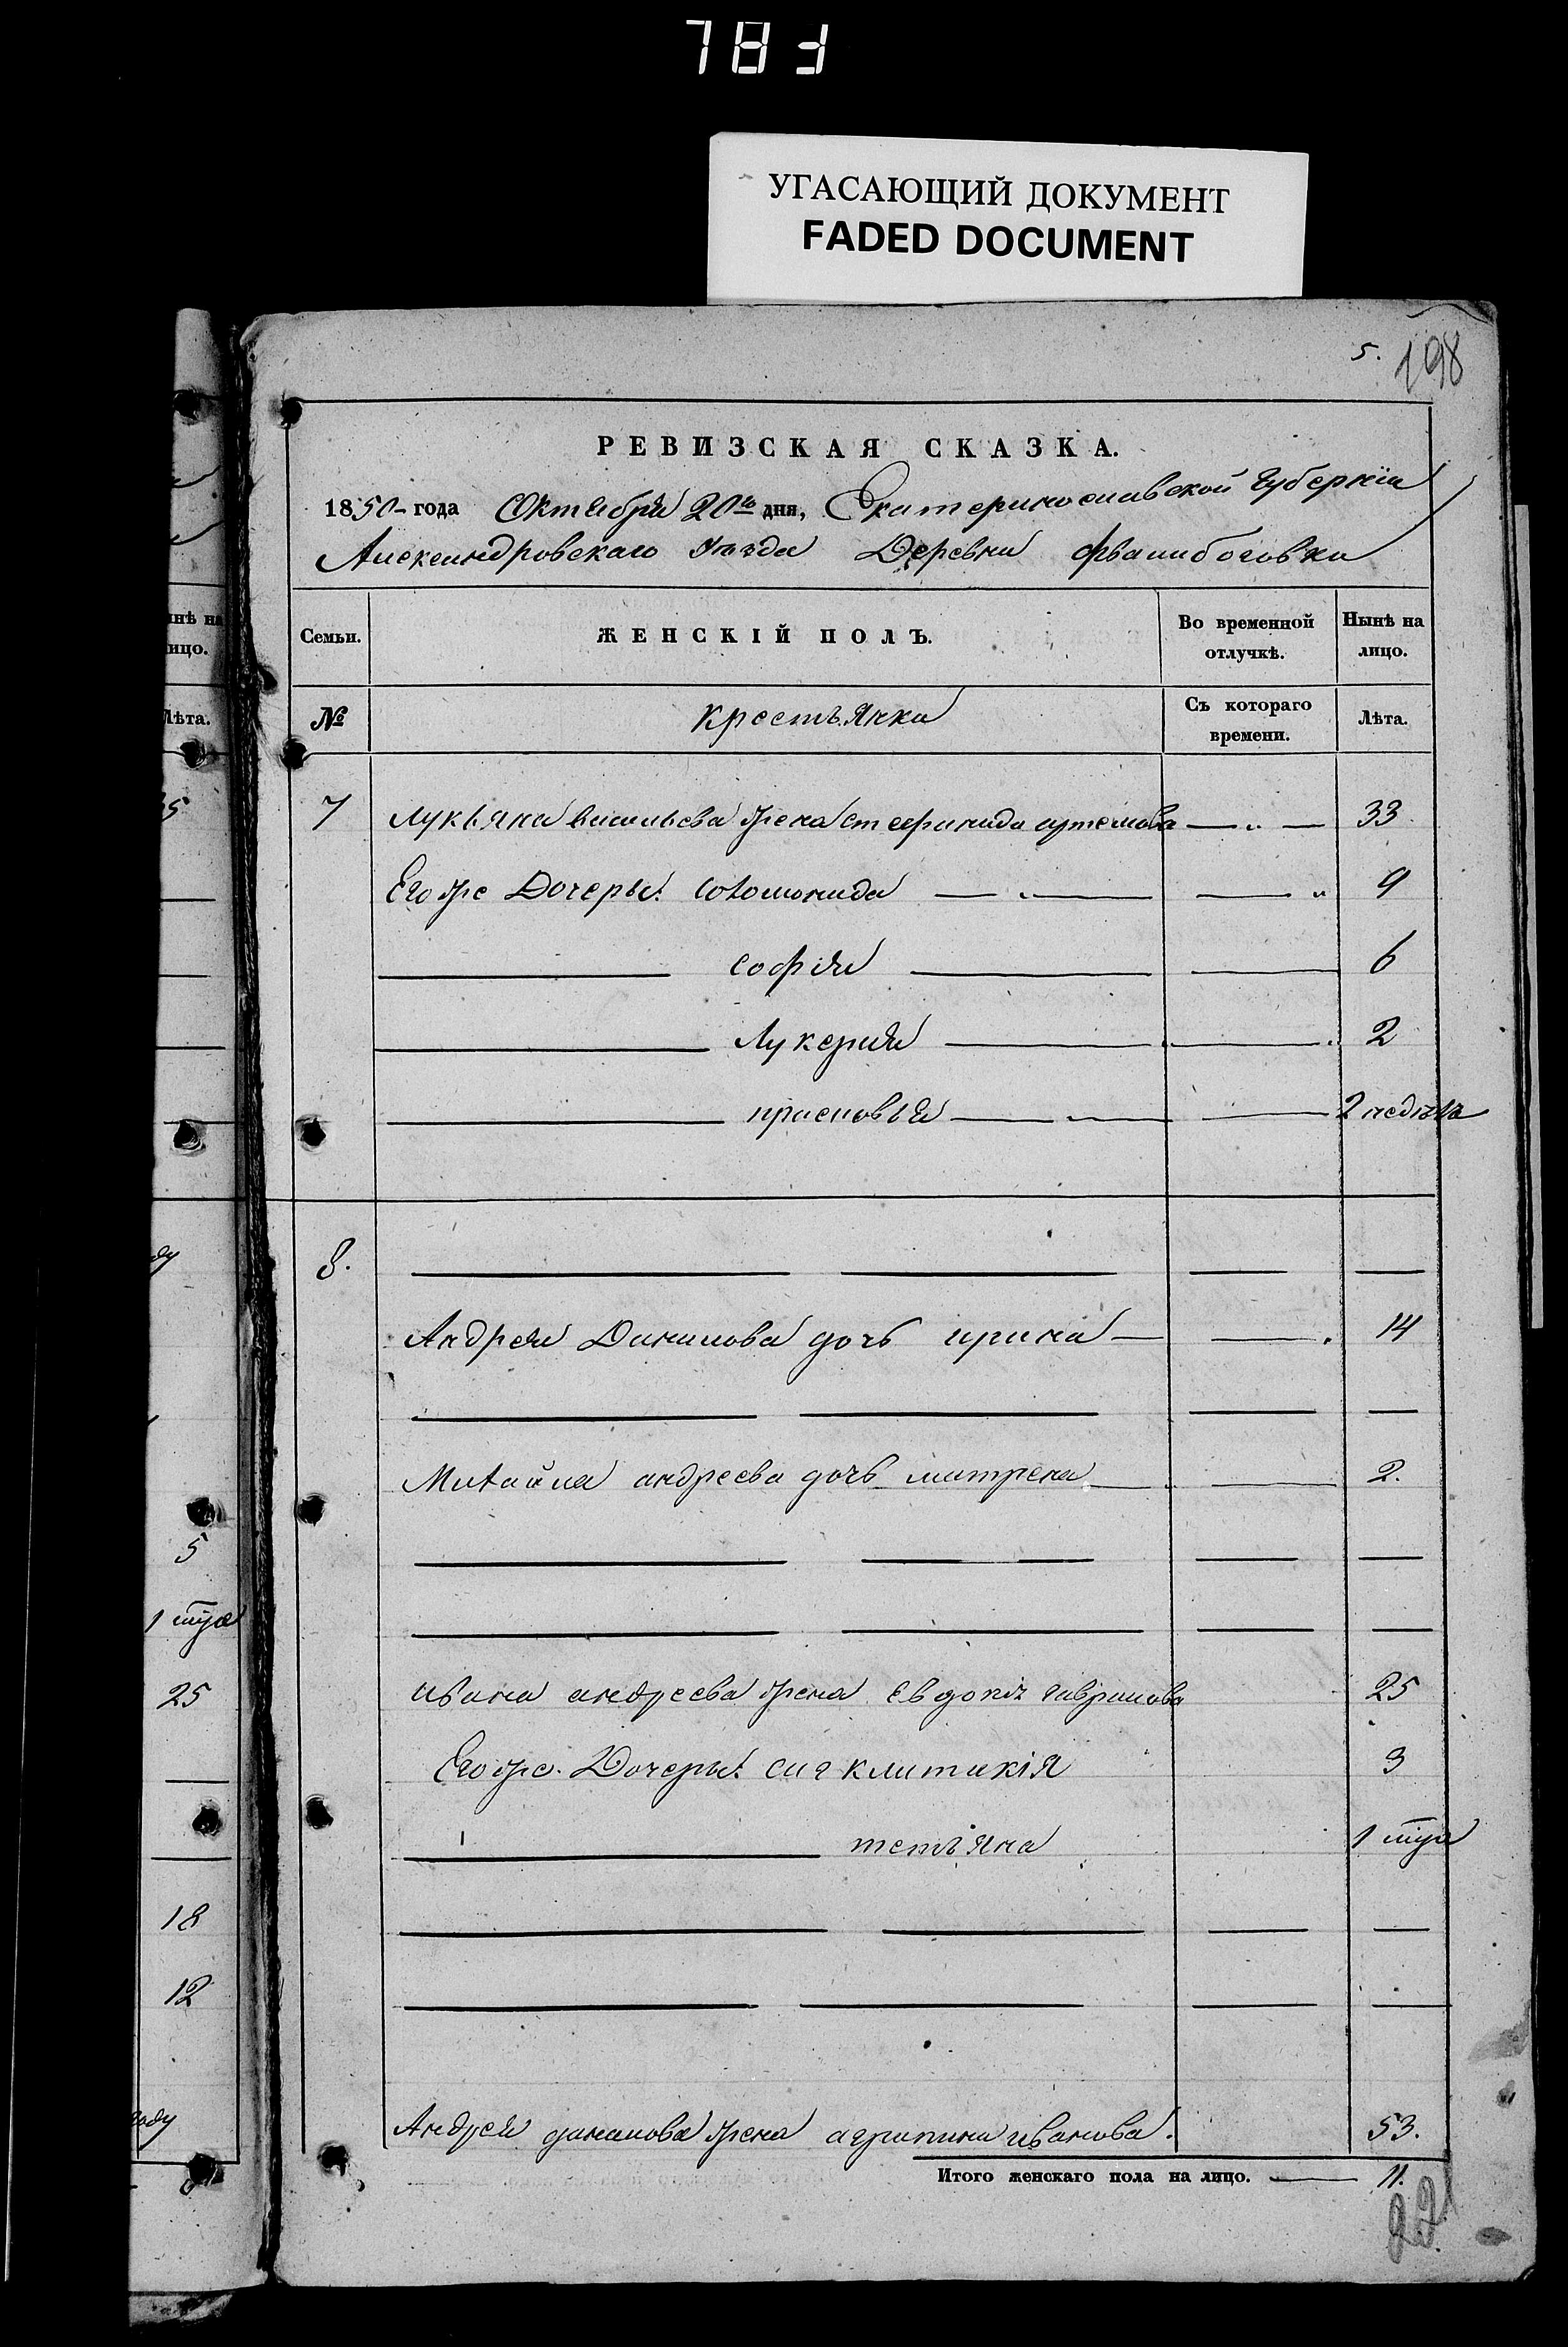 783
УГАСАЮЩИЙ ДОКУМЕНТ
FADED DOCUMENT
5. 198
РЕВИЗСКАЯ СКАЗКА.
1850 года Октября 20го дня, Екатеринославской Губерніи
Александровскаго Уѣзда Деревни
Семьи. ЖЕНСКІЙ ПОЛЪ. Во временной отлучкѣ. Нынѣ на лицо.
№ Крестьянки Съ котораго времени. Лѣта.
7 Лукьяна васильева жена артемова — „ — 33
Его же Дочеры: соломонида — „ — — „ 9
софия 6
Лукерия 2
прасковья 2 недѣли
8.
Андрея Данилова дочь ирина 14
Михайла андреева дочь матрена 2.
ивана андреева жена Евдокія гаврилова 25
Его же Дочеры: сигклитикія 3
тетьяна 1
Андрея данилова жена агрипина иванова. 53.
Итого женскаго пола на лицо. — 11.
22
ынѣ на
лицо.
Лѣта.
5
1
25
18
12
году